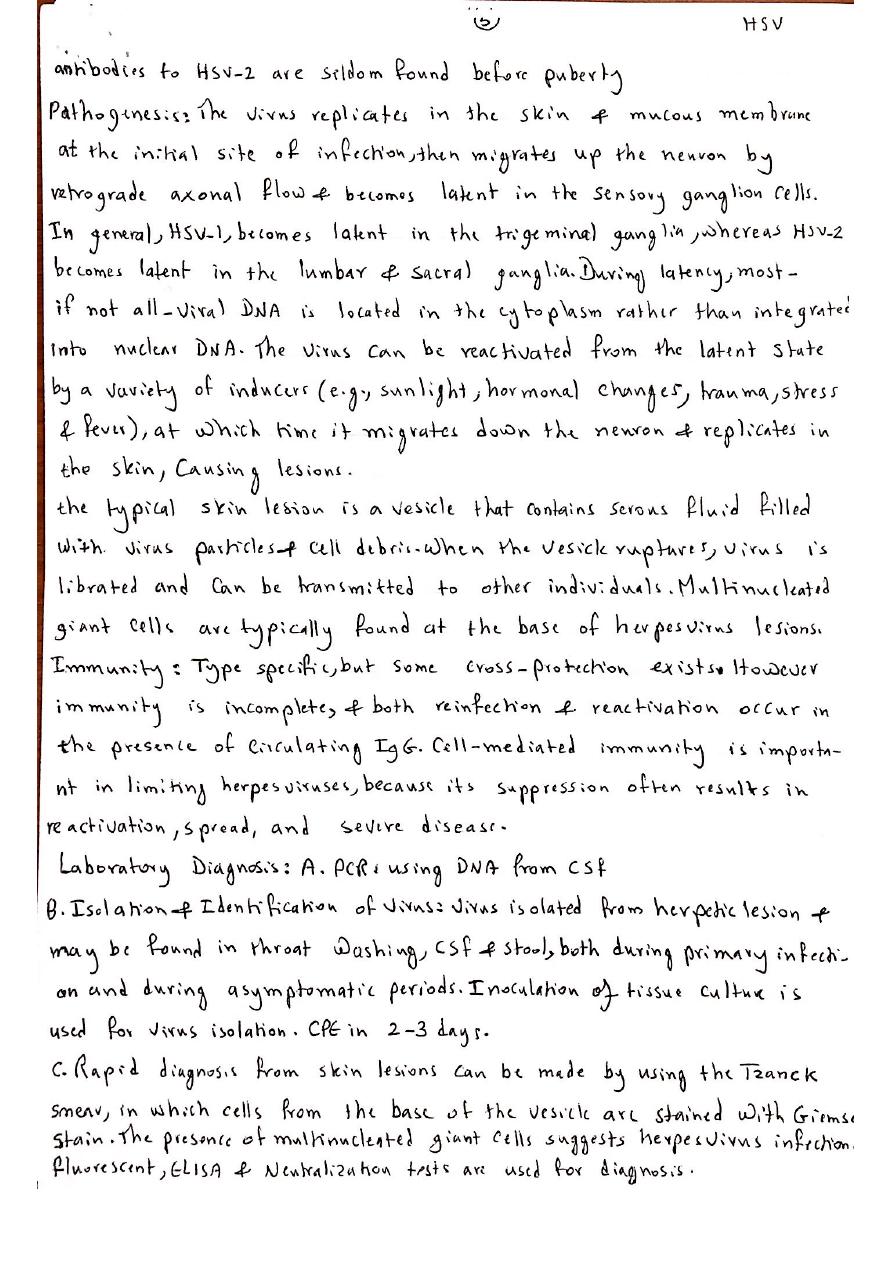 5 HSV
antibodies to HSV-2 are seldom found before puberty
Pathogenesis: The virus replicates in the skin & mucous membrane
at the initial site of infection, then migrates up the neuron by
retrograde axonal flow & becomes latent in the sensory ganglion cells.
In general, HSV-1, becomes latent in the trigeminal ganglia, whereas HSV-2
becomes latent in the lumbar & sacral ganglia. During latency, most-
if not all-viral DNA is located in the cytoplasm rather than integrated
into nuclear DNA. The virus can be reactivated from the latent state
by a variety of inducers (e.g., sunlight, hormonal changes, trauma, stress
& fever), at which time it migrates down the neuron & replicates in
the skin, causing lesions.
the typical skin lesion is a vesicle that contains serous fluid filled
with virus particles & cell debris. When the vesicle ruptures, virus is
librated and can be transmitted to other individuals. Multinucleated
giant cells are typically found at the base of herpesvirus lesions.
Immunity: Type specific, but some cross-protection exists. However
immunity is incomplete, & both reinfection & reactivation occur in
the presence of circulating IgG. Cell-mediated immunity is importa-
nt in limiting herpesviruses, because its suppression often results in
reactivation, spread, and severe disease.
Laboratory Diagnosis: A. PCR: using DNA from CSF
B. Isolation & Identification of virus: virus isolated from herpetic lesion &
may be found in throat washing, CSF & stool, both during primary infecti-
on and during asymptomatic periods. Inoculation of tissue culture is
used for virus isolation. CPE in 2-3 days.
C. Rapid diagnosis from skin lesions can be made by using the Tzanck
smear, in which cells from the base of the vesicle are stained with Giemsa
stain. The presence of multinucleated giant cells suggests herpesvirus infection.
fluorescent, ELISA & Neutralization tests are used for diagnosis.